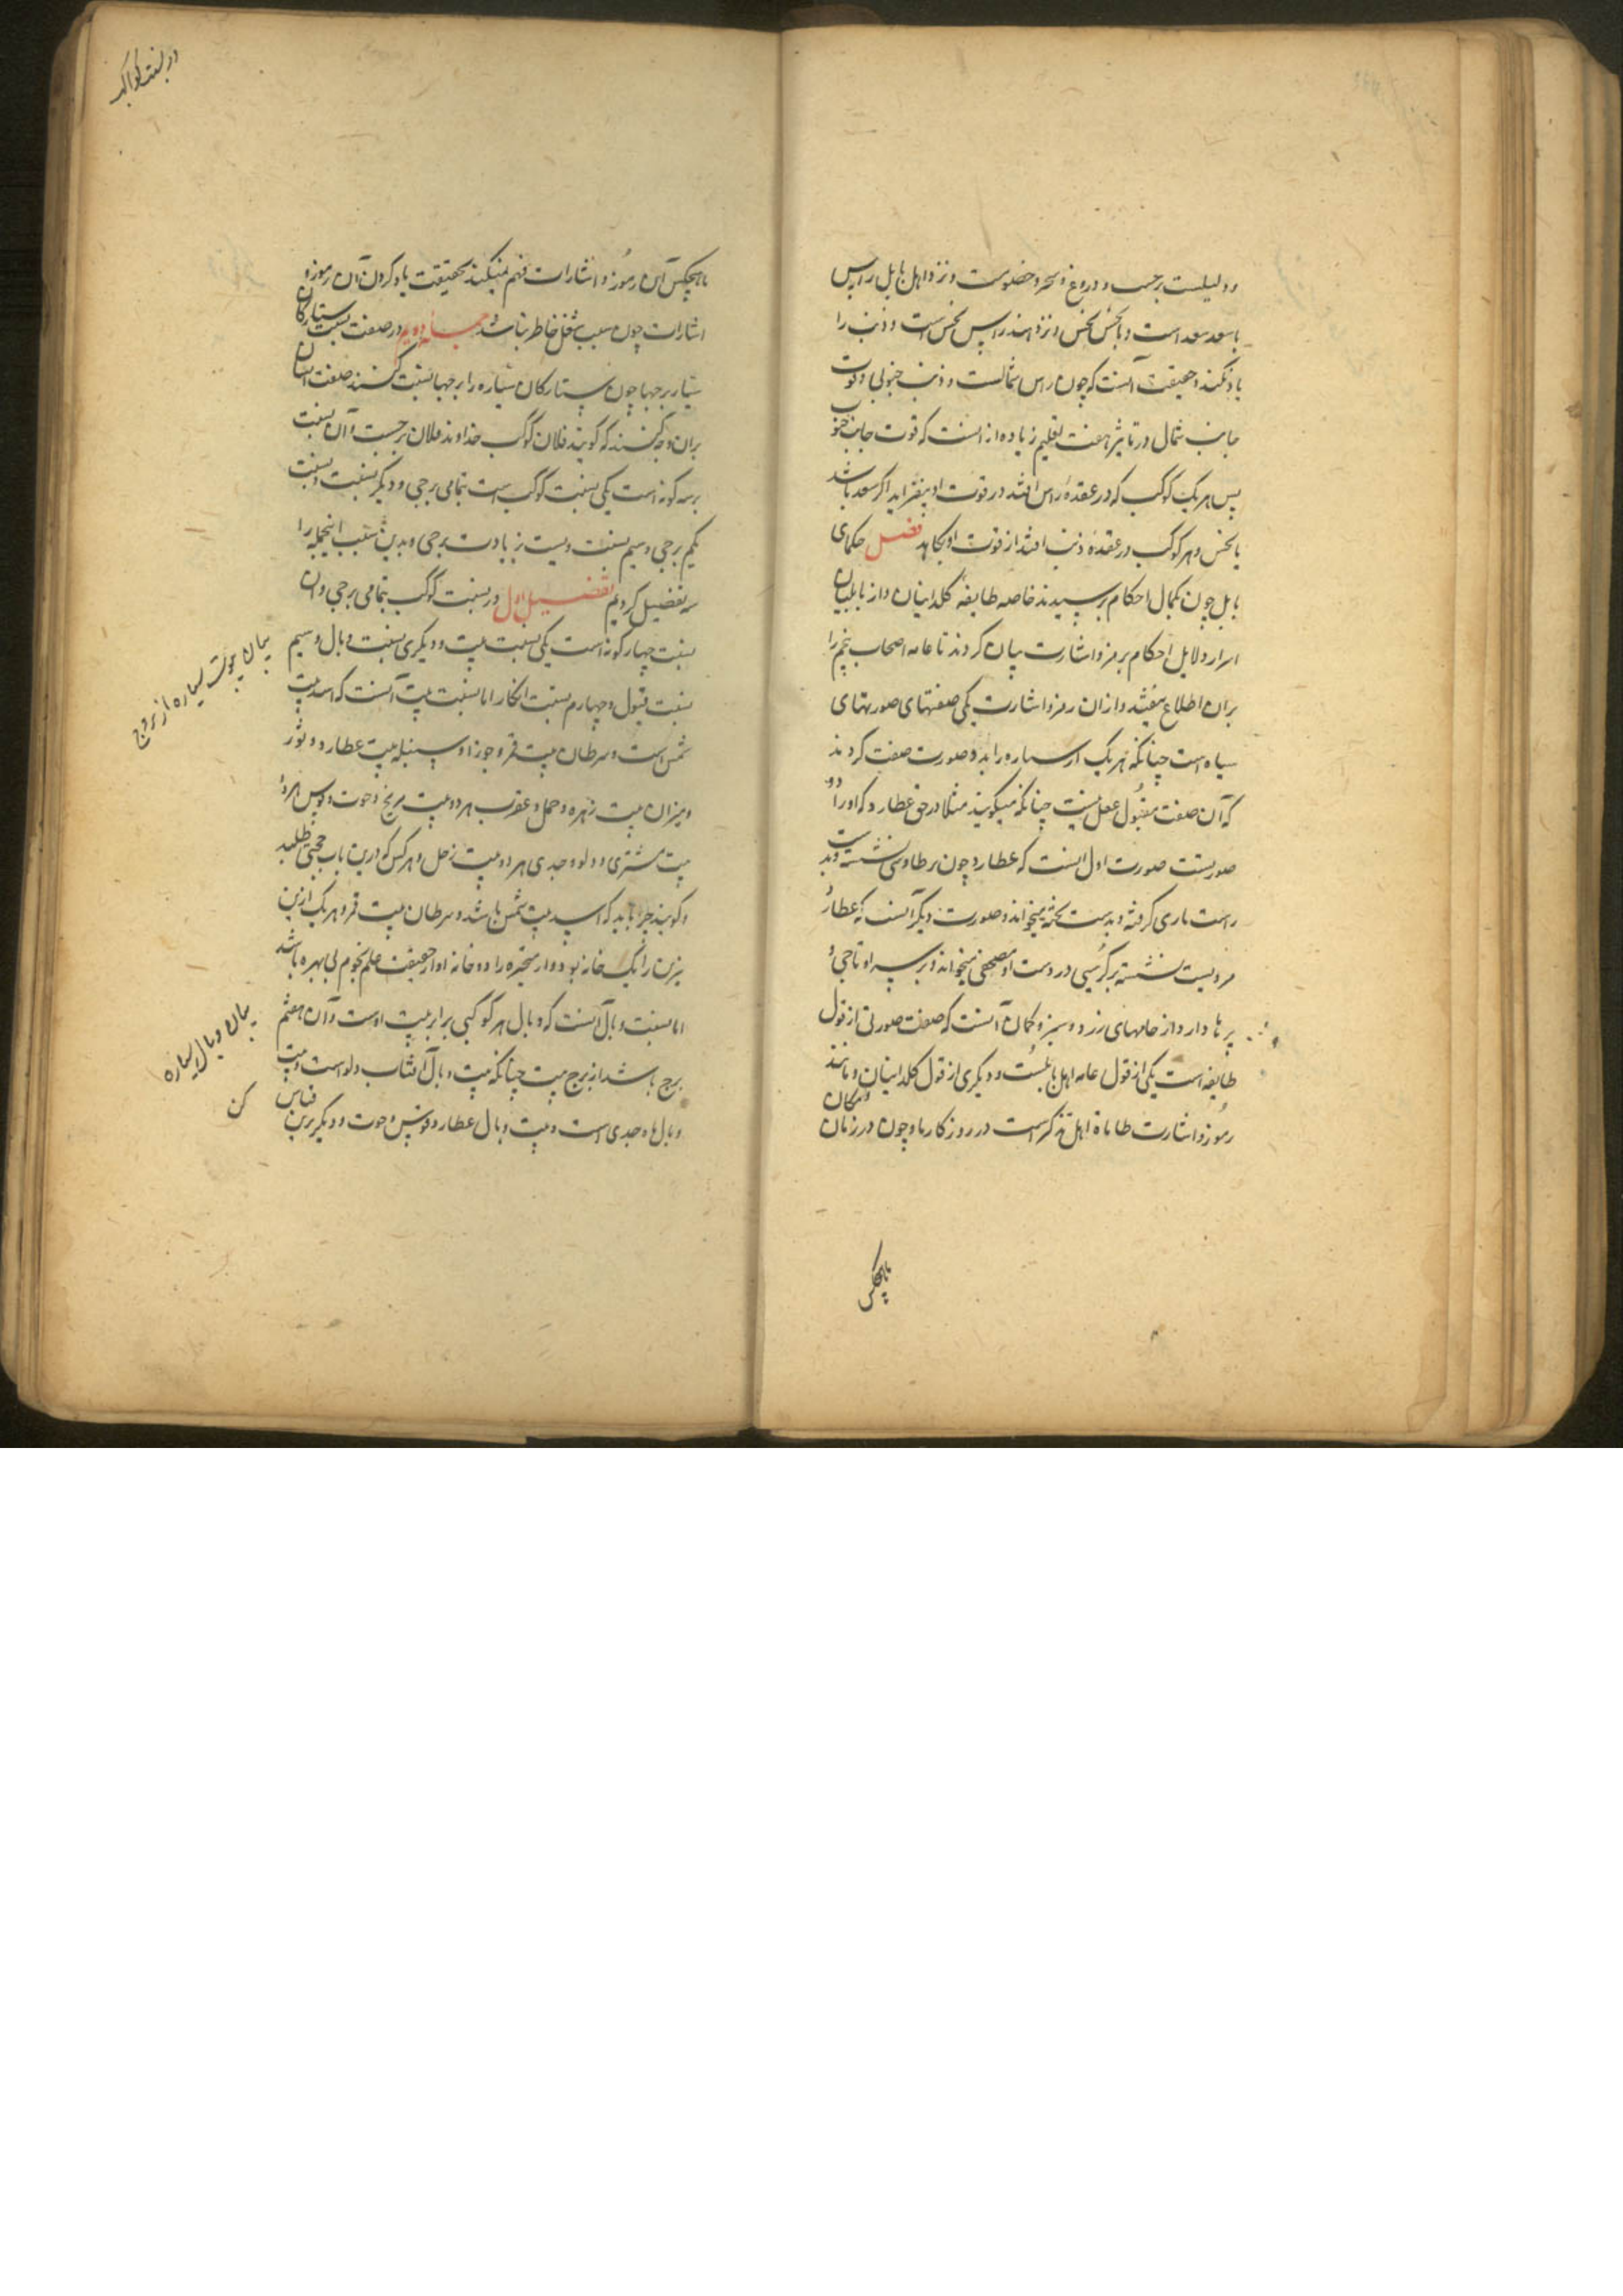 و دلیلست بر حسب و دروغ و سحر و خصومت و نزد اهل بابل راس
با سعد سعد است و با نحس نحس و نزد هند راس نحس است و ذنب را
یاد نکنند و حقیقت آنست که چون راس شمالیست و ذنب جنوبی و قوت
جانب شمال در تاثیر هفت اقلیم زیاده از انست که قوت جانب جنوب
پس هر یک کوکب که در عقدهٔ راس افتد در قوت او بیفزاید اگر سعد باشد
یا نحس و هر کوکب در عقدهٔ ذنب افتد از قوت او بکاهد فصل حکمای
بابل چون بکمال احکام برسیدند خاصه طایفه کلدانیان و از بابلیان
اسرار دلایل احکام برمز و اشارت بیان کردند تا عامه اصحاب نجم را
بران اطلاع نیفتد و از ان رمز و اشارت یکی صفتهای صورتهای
سیاه است چنانکه هر یک از سیاره را بدو صورت صفت کردند
که آن صفت مقبول عقل نیست چنانکه میگویند مثلا در حق عطارد که او را دو
صورتست صورت اول انست که عطارد چون بر طاوسی نشسته و بدست
راست ماری گرفته و بدست تخته میخواند و صورت دیگر آنست که عطارد
مردیست نشسته بر کرسی در دست او مصحفی میخواند و بر سر او تاجی و
پرها دارد از جامهای زرد و سبز و گمان آنست که صفت صورتی از قول
طایفه است یکی از قول عامه اهل بابلست و دیگری از قول کلدانیان و مانند
رموز و اشارت اهل است در روزگار ما و چون در زمان
ما هیچکس
در نسبت کواکب
ما هیچکس آن رموز و اشارات فهم نمیکند بحقیقت یاد کردن آن رموز و
اشارات چون سبب شغل خاطر نباشد در صفت نسبت ستارگان
سیار ببرجها چون ستارگان سیاره را ببرجها نسبت کنند صفت ایشان
بران وجه کنند که گویند فلان کوکب خداوند فلان برجست و آن نسبت
بر سه گونه است یکی نسبت کوکب است بتمامی برجی و دیگر نسبت
بکم برجی و سیم نسبت ویست بزیادت برجی و بدین سبب اینجمله را
سه تفصیل کردیم تفصیل اول در نسبت کوکب بتمامی برجی و ان
نسبت چهار گونه است یکی نسبت بیت و دیگری نسبت وبال و سیم
نسبت قبول و چهارم نسبت انکار اما نسبت بیت آنست که اسد بیت
شمس است و سرطان بیت قمر و جوزا و سنبله بیت عطارد و ثور
و میزان بیت زهره و حمل و عقرب هر دو بیت مریخ و حوت و قوس هر دو
بیت مشتری و دلو و جدی هر دو بیت زحل و هر کس که درین باب حجتی طلبد
و گوید چرا باید که اسد بیت شمس باشد و سرطان بیت قمر و هر یک ازین
نیزین را یک خانه بود و از متحیره را دو خانه او از حقیقت علم نجوم بی بهره باشد
اما نسبت وبال آنست که وبال هر کوکبی برابر بیت اوست و آن هفتم
برج باشد از برج بیت چنانکه بیت وبال آفتاب دلو است و بیت
وبال ماه جدی است و بیت وبال عطارد قوس و حوت و دیگر برین قیاس
کن
بیان بیوت سیاره از بروج
بیان وبال سیاره